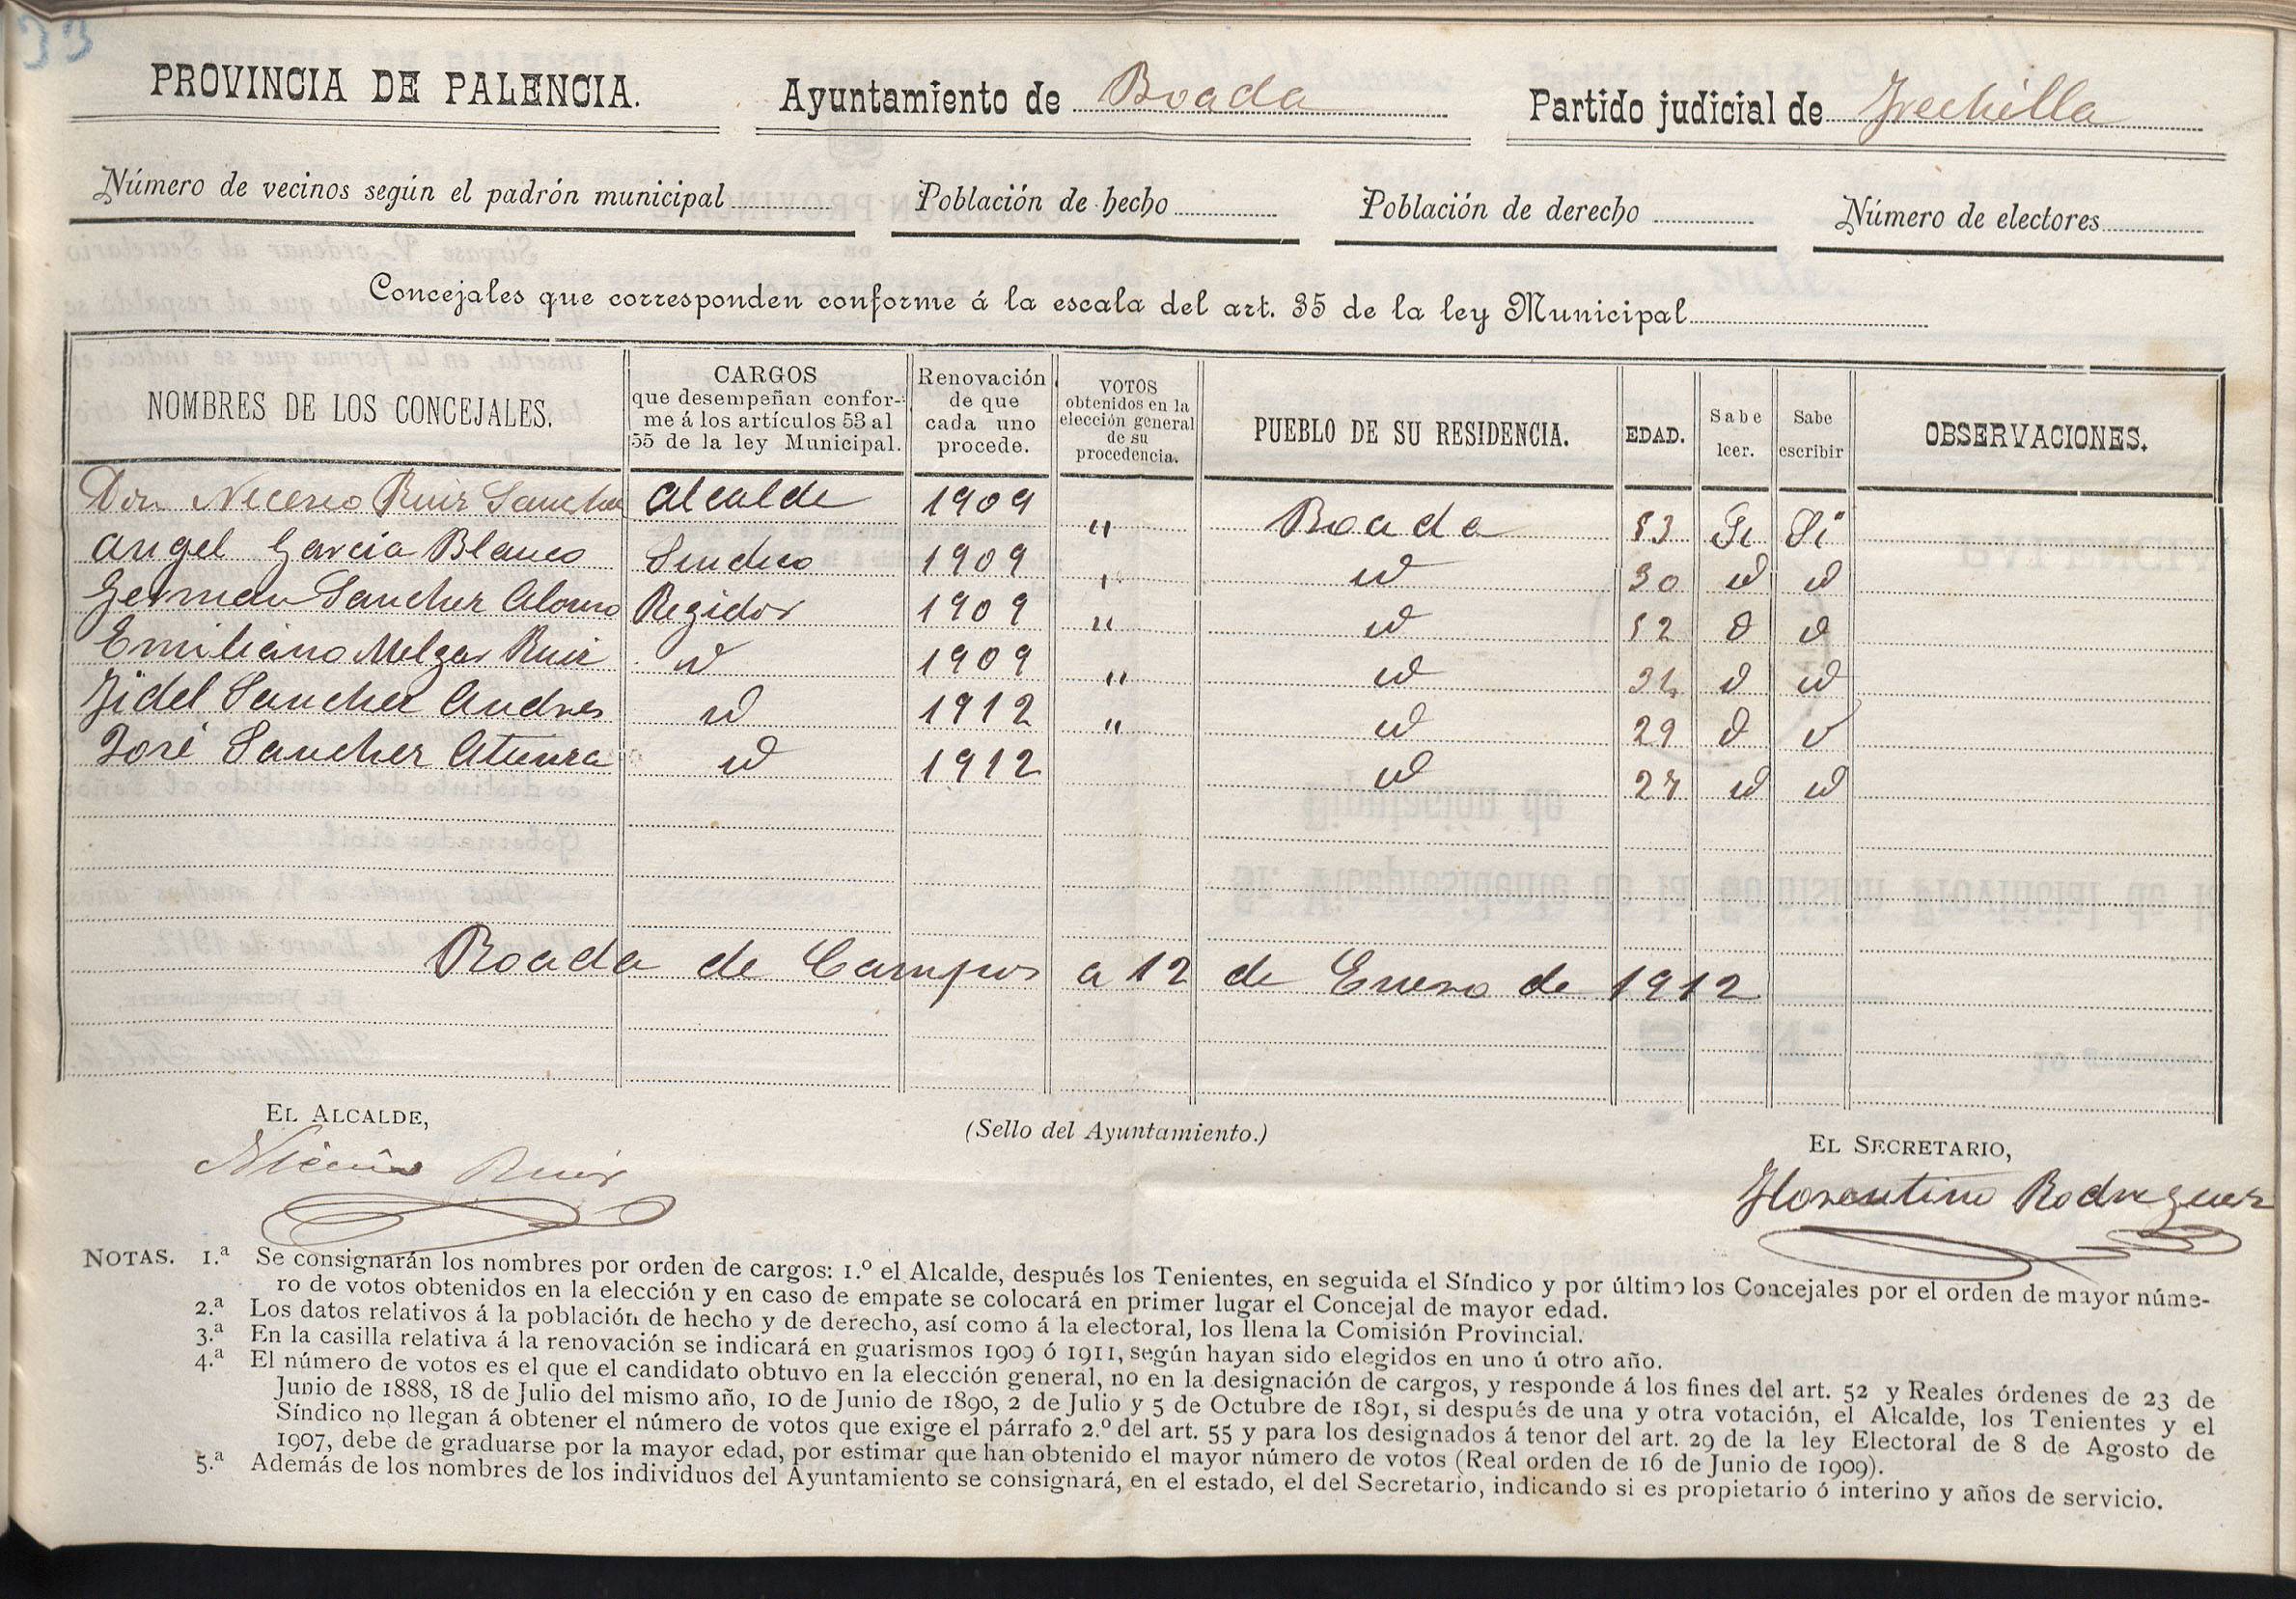 33
PROVINCIA DE PALENCIA. Ayuntamiento de Boada Partido judicial de Frechilla
Número de vecinos según el padrón municipal Población de hecho Población de derecho Número de electores
Concejales que corresponden conforme á la escala del art. 35 de la ley Municipal
NOMBRES DE LOS CONCEJALES. CARGOS que desempeñan confor- me á los artículos 53 al 55 de la ley Municipal. Renovación de que cada uno procede. VOTOS obtenidos en la elección general de su procedencia. PUEBLO DE SU RESIDENCIA. EDAD. Sabe leer. Sabe escribir OBSERVACIONES.
Don Nicerio Ruiz Sanchez Alcalde 1909 " Boada 53 Si Si
Angel Garcia Blanco Sindico 1909 " id 30 id id
German Sancher Alonso Regidor 1909 " id 52 id id
Emiliano Melgar Ruiz id 1909 " id id id
Fidel Sancher Andres id 1912 " id 29 id id
José Sancher Atienza id 1912 id 27 id id
Boada de Campos a 12 de Enero de 1912
EL ALCALDE,
(Sello del Ayuntamiento.)
EL SECRETARIO,
Ruiz
Florentino Rodriguez
NOTAS. 1.ª Se consignarán los nombres por orden de cargos: 1.º el Alcalde, después los Tenientes, en seguida el Síndico y por último los Concejales por el orden de mayor núme-
ro de votos obtenidos en la elección y en caso de empate se colocará en primer lugar el Concejal de mayor edad.
2.ª Los datos relativos á la población de hecho y de derecho, así como á la electoral, los llena la Comisión Provincial.
3.ª En la casilla relativa á la renovación se indicará en guarismos 1909 ó 1911, según hayan sido elegidos en uno ú otro año.
4.ª El número de votos es el que el candidato obtuvo en la elección general, no en la designación de cargos, y responde á los fines del art. 52 y Reales órdenes de 23 de
Junio de 1888, 18 de Julio del mismo año, 10 de Junio de 1890, 2 de Julio y 5 de Octubre de 1891, si después de una y otra votación, el Alcalde, los Tenientes y el
Síndico no llegan á obtener el número de votos que exige el párrafo 2.º del art. 55 y para los designados á tenor del art. 29 de la ley Electoral de 8 de Agosto de
1907, debe de graduarse por la mayor edad, por estimar que han obtenido el mayor número de votos (Real orden de 16 de Junio de 1909).
5.ª Además de los nombres de los individuos del Ayuntamiento se consignará, en el estado, el del Secretario, indicando si es propietario ó interino y años de servicio.